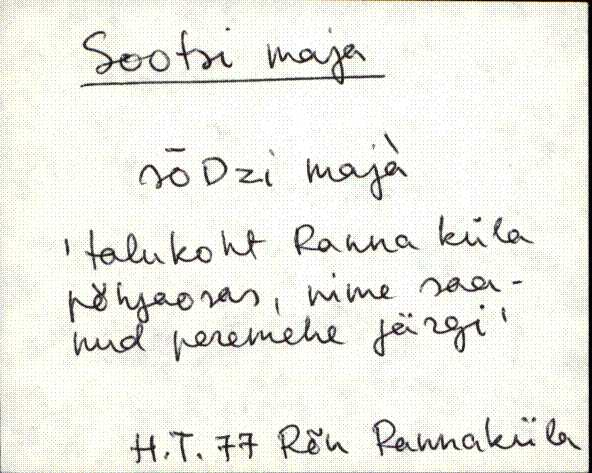 Sootsi maja
sōDzi majà
'talukoht Ranna küla
põhjaosas, nime saa-
nud peremehe järgi'
H.T. 77 Rõn Rannaküla